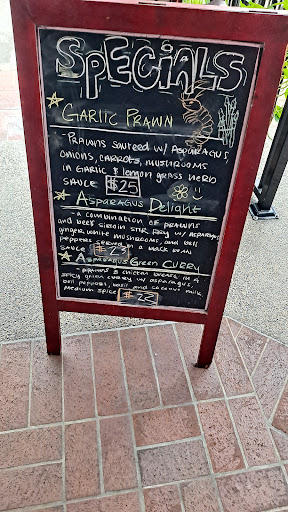 SPECIALS
GARLIC PRAWN
- PRAWNS SAUTEED W/ ASPARAGUS,
ONIONS, CARROTS, MUSHROOMS
IN GARLIC & LEMON GRASS HERB
SAUCE $25
ASPARAGUS DELIGHT
- a COMBINATION OF PRAWNS
and BEEF SIRLOIN STIR FRY W/ ASPARAGUS,
GINGER, WHITE MUSHROOMS, and BELL
PEPPERS SERVED IN a BLACK BEAN
SAUCE $23
ASPARAGUS GREEN CURRY
- PRAWNS & CHICKEN BREAST IN A
SPICY GREEN CURRY W/ ASPARAGUS,
BELL PEPPERS, BASIL and COCONUT MILK
MEDIUM SPICE $23